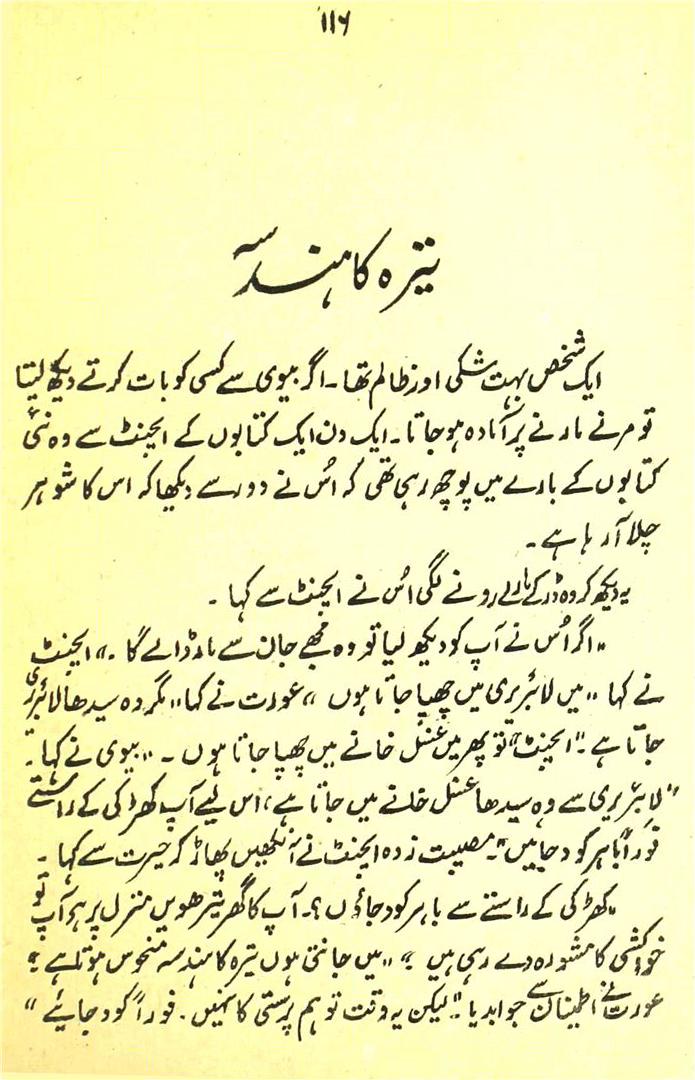 ۱۱۶
تیرہ کا ہندسہ
ایک شخص بہت شکی اور ظالم تھا۔ اگر بیوی سے کسی کو بات کرتے دیکھ لیتا
تو مرنے مارنے پر آمادہ ہو جاتا۔ ایک دن ایک کتابوں کے ایجنٹ سے وہ نئی
کتابوں کے بارے میں پوچھ رہی تھی کہ اُس نے دور سے دیکھا کہ اس کا شوہر
چلا آ رہا ہے۔
یہ دیکھ کر وہ ڈر کے مارے رونے لگی اُس نے ایجنٹ سے کہا۔
"اگر اُس نے آپ کو دیکھ لیا تو وہ مجھے جان سے مار ڈالے گا۔" ایجنٹ
نے کہا "میں لائبریری میں چھپا جاتا ہوں" عورت نے کہا "مگر وہ سیدھا لائبریری
جاتا ہے۔" ایجنٹ "تو پھر میں غسل خانے میں چھپا جاتا ہوں۔" بیوی نے کہا۔
"لائبریری سے وہ سیدھا غسل خانے میں جاتا ہے، اس لیے آپ کھڑکی کے راستے
فوراً باہر کود جایں"۔ مصیبت زدہ ایجنٹ نے آنکھیں پھاڑ کر حیرت سے کہا۔
"کھڑکی کے راستے سے باہر کود جاؤں؟۔ آپ کا گھر تیرھویں منزل پر ہے آپ تو
خودکشی کا مشورہ دے رہی ہیں؟" "میں جانتی ہوں تیرہ کا ہندسہ منحوس ہوتا ہے؟
عورت نے اطمینان سے جواب دیا۔" لیکن یہ وقت توہم پرستی کا نہیں۔ فوراً کود جایئے"